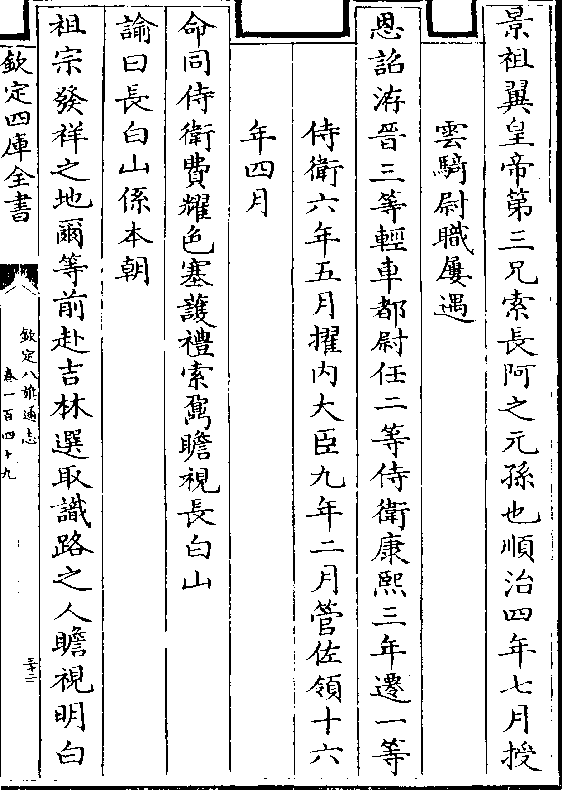 景祖翼皇帝第三兄索長阿之元孫也順治四年七月授
雲騎尉職屢遇
恩詔洊晉三等輕車都尉任二等侍衛康熙三年遷一等
侍衛六年五月擢內大臣九年二月管佐領十六
年四月
命同侍衛費耀色塞護禮索鼐瞻視長白山
諭曰長白山係本朝
祖宗發祥之地爾等前赴吉林選取識路之人瞻視明白
欽定四庫全書
欽定八旗通志
卷一百四十九